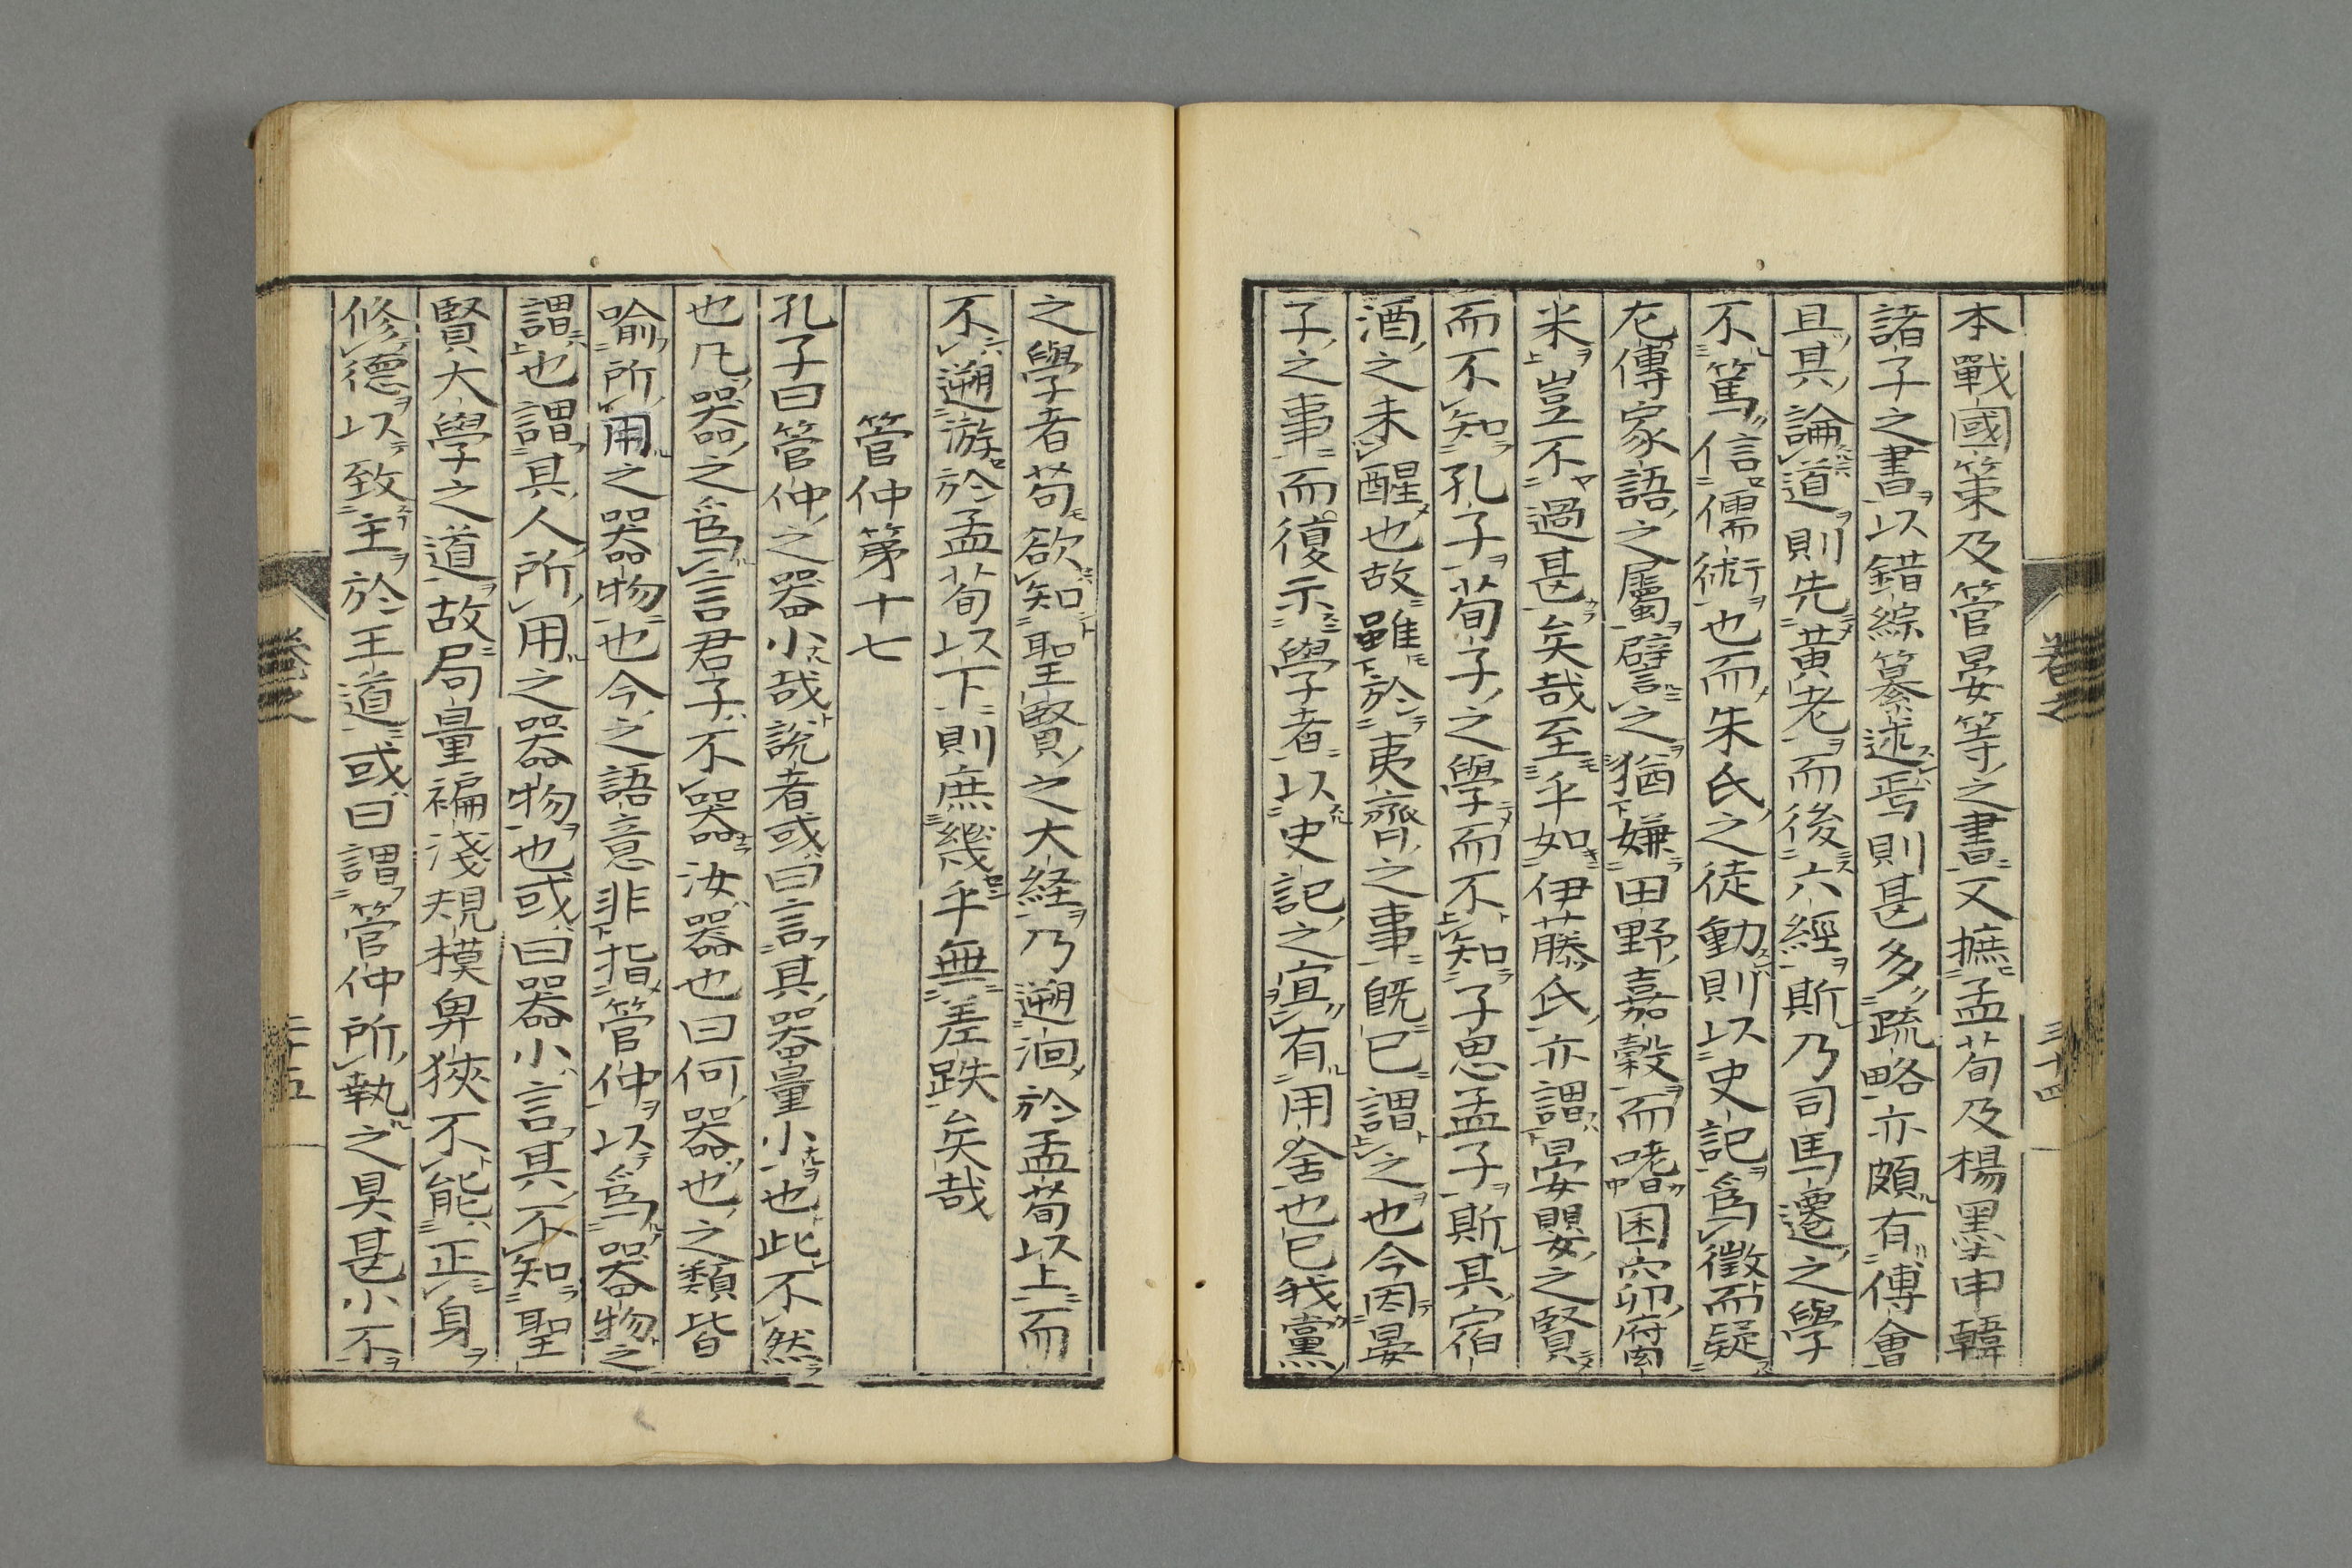 本戰國策及管晏等之書又摭孟荀及楊墨申韓
諸子之書以錯綜纂述焉則甚多疏略亦頗有傅會
且其論道則先黄老而後六經斯乃司馬遷之學
不篤信儒術也而朱氏之徒動則以史記爲徵而疑
左傳家語之屬譬之猶嫌田野嘉穀而嗜囷窌腐
米豈不過甚矣哉至乎如伊藤氏亦謂晏嬰之賢
而不知孔子荀子之學而不知子思孟子斯其宿
酒之未醒也故雖於夷齊之事既已謂之也今因晏
子之事而復示學者以史記之宜有用舍也已我黨
卷之
三十四
之學者苟欲知聖賢之大経乃遡洄於孟荀以上而
不遡游於孟荀以下則庶幾乎無差跌矣哉
管仲第十七
孔子曰管仲之器小哉說者或曰言其器量小也此不然
也凡器之爲言君子不器汝器也曰何器也之類皆
喻所用之器物也今之語意非指管仲以爲器物之
謂也謂其人所用之器物也或曰器小言其不知聖
賢大學之道故局量褊淺規模卑狹不能正身
修德以致主於王道或曰謂管仲所執之具甚小不
卷之
三十五